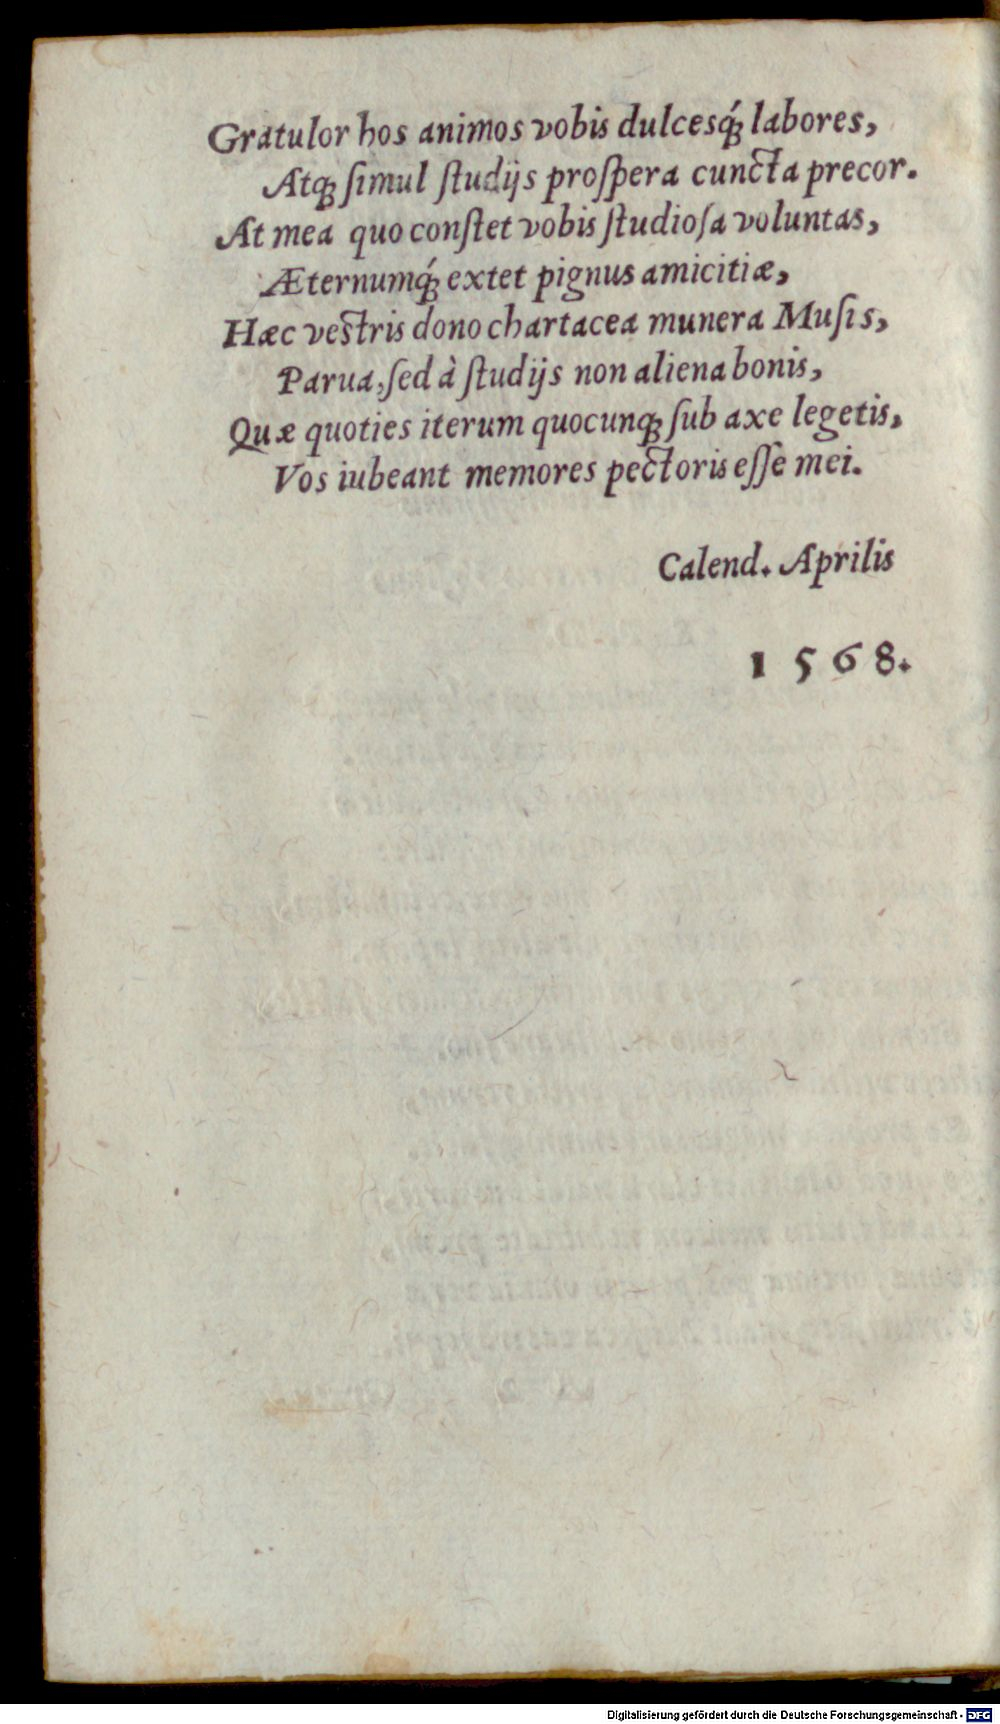 Gratulor hos animos vobis dulcesq́ꝫ labores,
Atqꝫ ſimul ſtudijs proſpera cuncta precor.
At mea quo conſtet vobis ſtudioſa voluntas,
Æternumq́ꝫ extet pignus amicitiæ,
Hæc vestris dono chartacea munera Muſis,
Parua, ſed à ſtudijs non aliena bonis,
Quæ quoties iterum quocunqꝫ ſub axe legetis,
Vos iubeant memores pectoris eſſe mei.
Calend. Aprilis
1568.
Digitalisierung gefördert durch die Deutsche Forschungsgemeinschaft - DFG